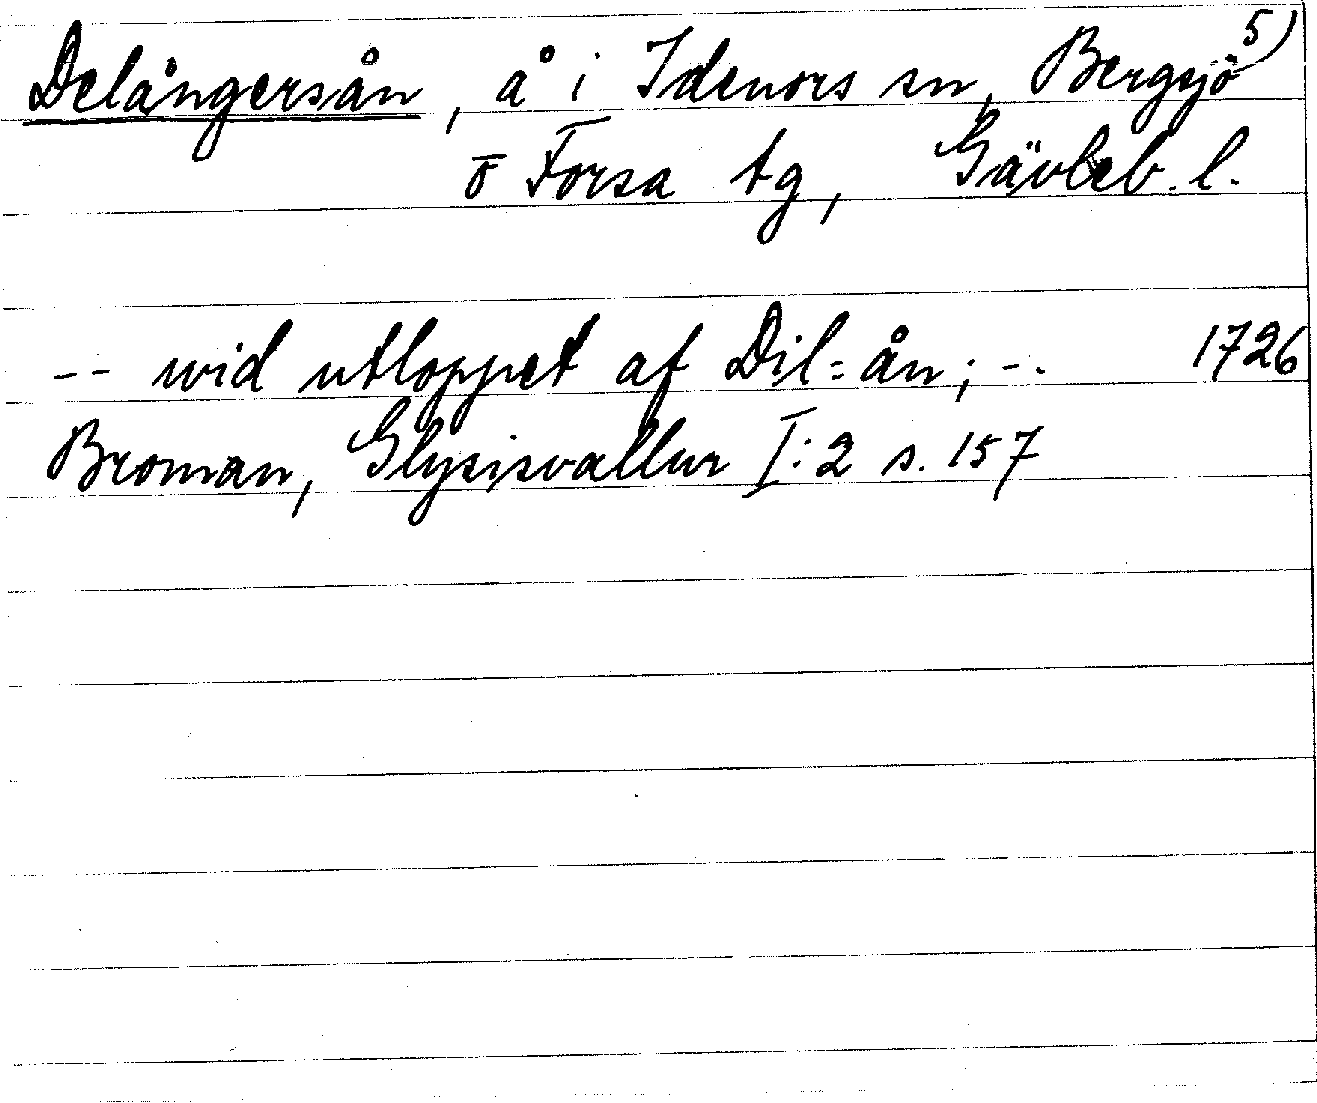 Delångersån, å i Idenors sn, Bergsjö 5)
o Forsa tg, Gävleb. l.
-- wid utloppet af Dil=ån; -. 1726
Broman, Glysisvallur I:2 s. 157